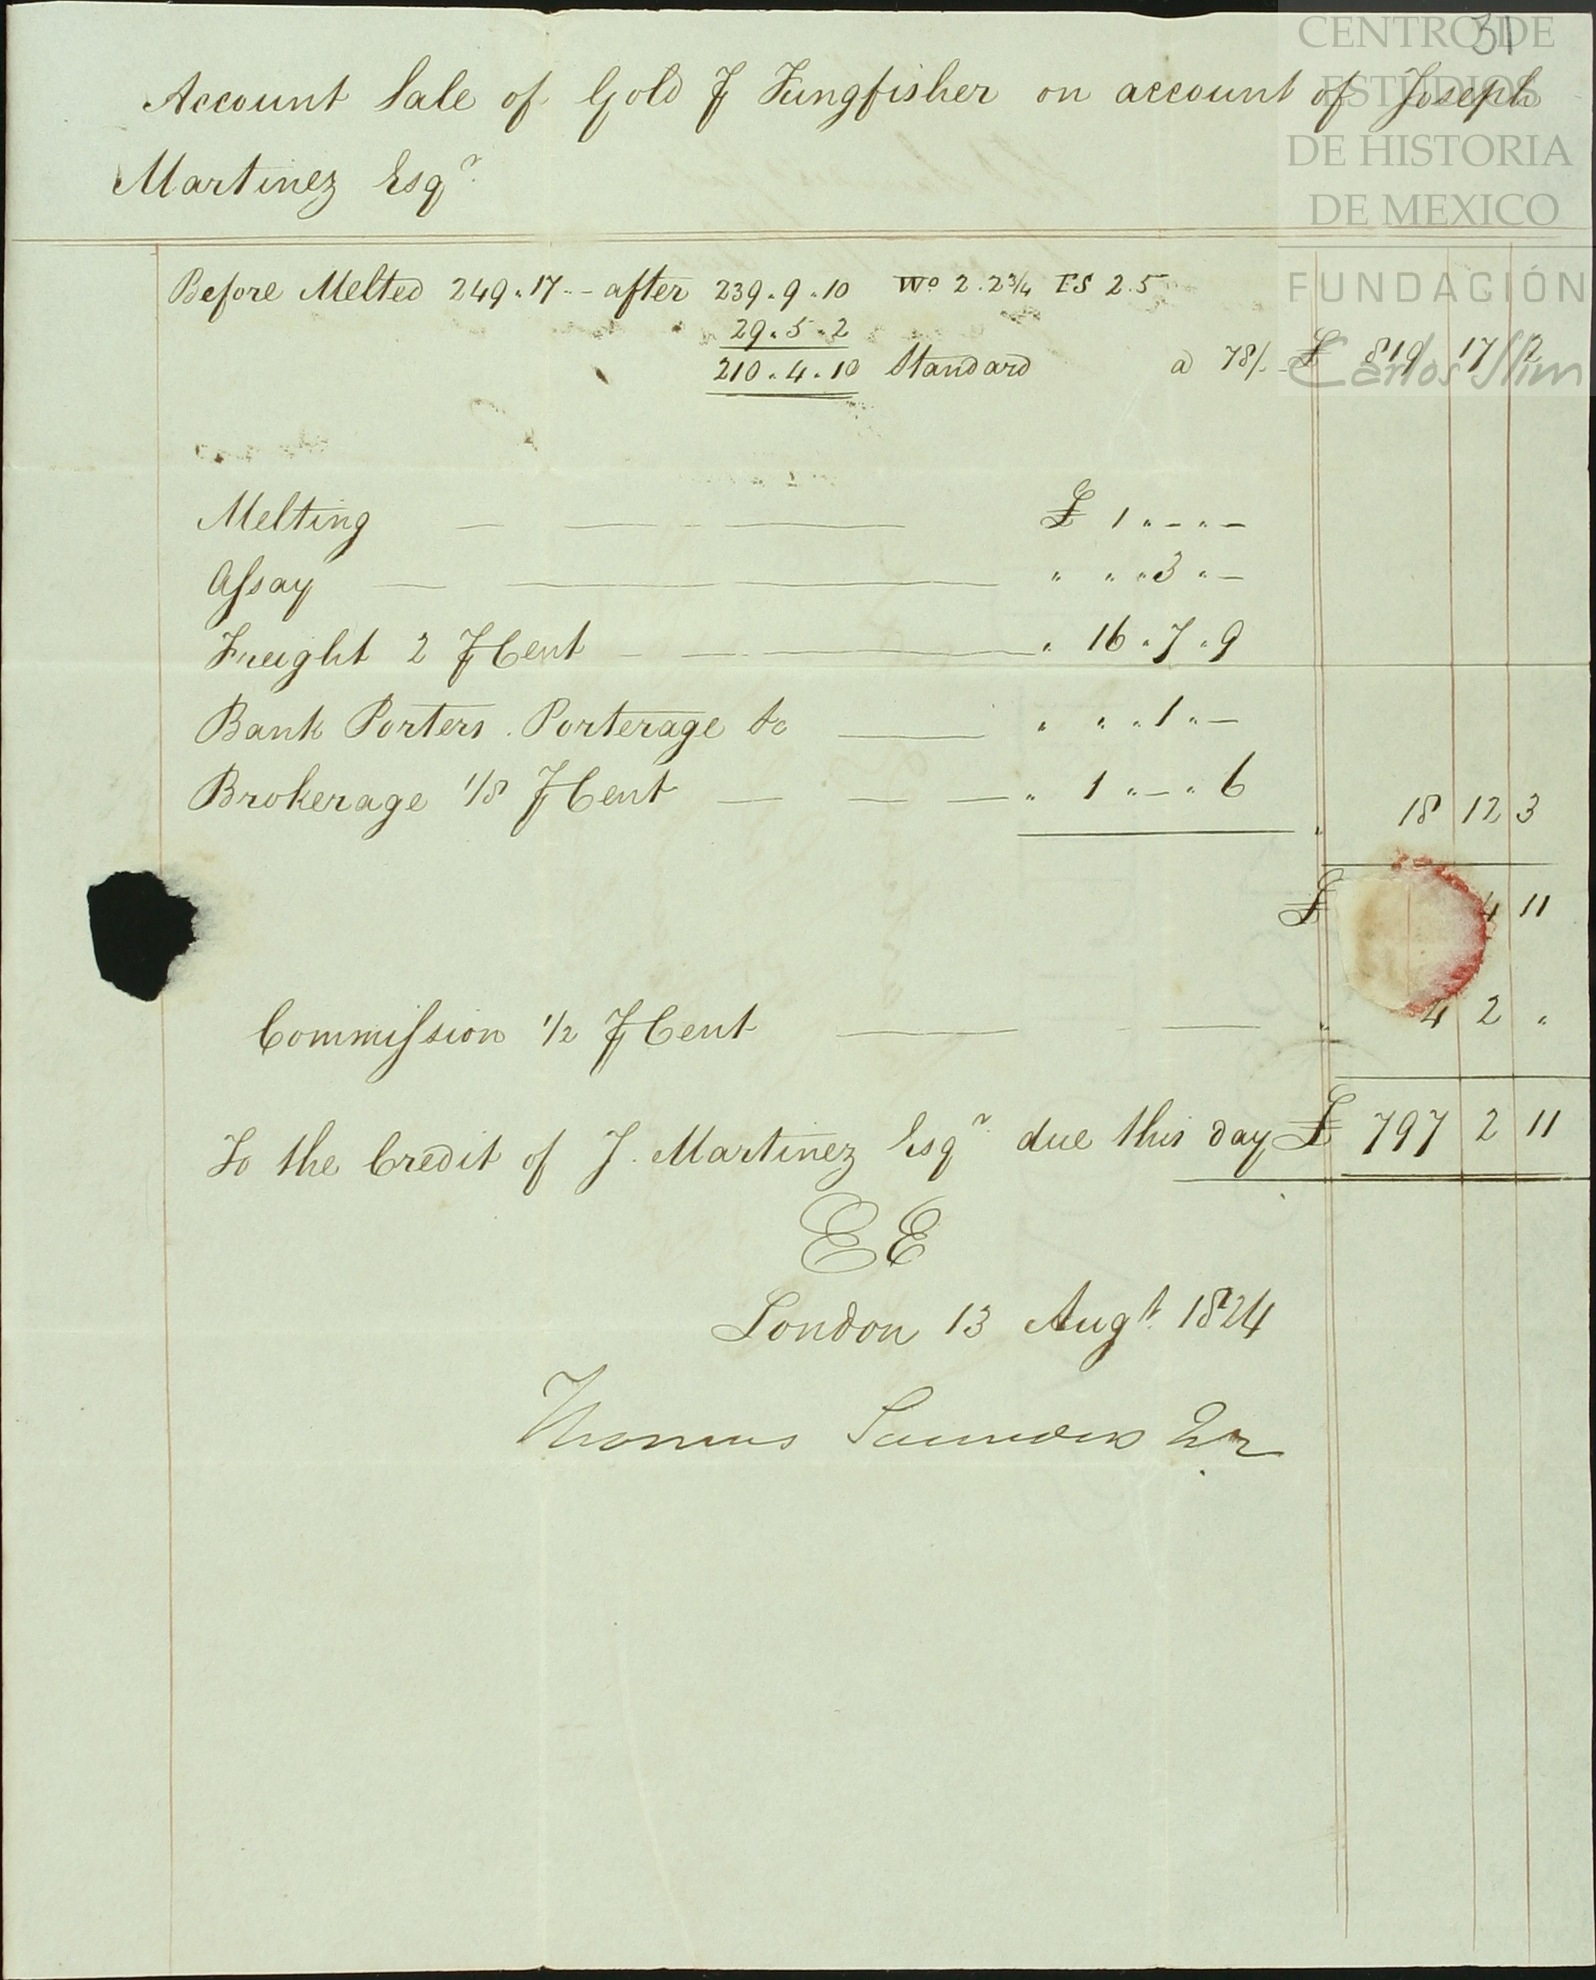 31
CENTRO DE
ESTUDIOS
DE HISTORIA
DE MEXICO
FUNDACIÓN
Carlos Slim
Account Sale of Gold ⅌ Kingfisher on account of Joseph
Martinez Esqr.
Before Melted 249.17.- after 239.9.10 Wo 2.2¾ FS 2.5
29.5.2
210.4.10 Standard a 78/- £ 819 17 2
Melting £ 1.-.-
Assay " " 3 " -
Freight 2 ⅌ Cent " 16.7.9
Bank Porters. Porterage &c " " 1 " -
Brokerage 1/8 ⅌ Cent " 1 " - " 6 " 18 12 3
£ 4 11
Commission 1/2 ⅌ Cent " 4 2 "
To the Credit of J. Martinez Esqr. due this day £ 797 2 11
EE
London 13 Augt. 1824
Thomas Saunders